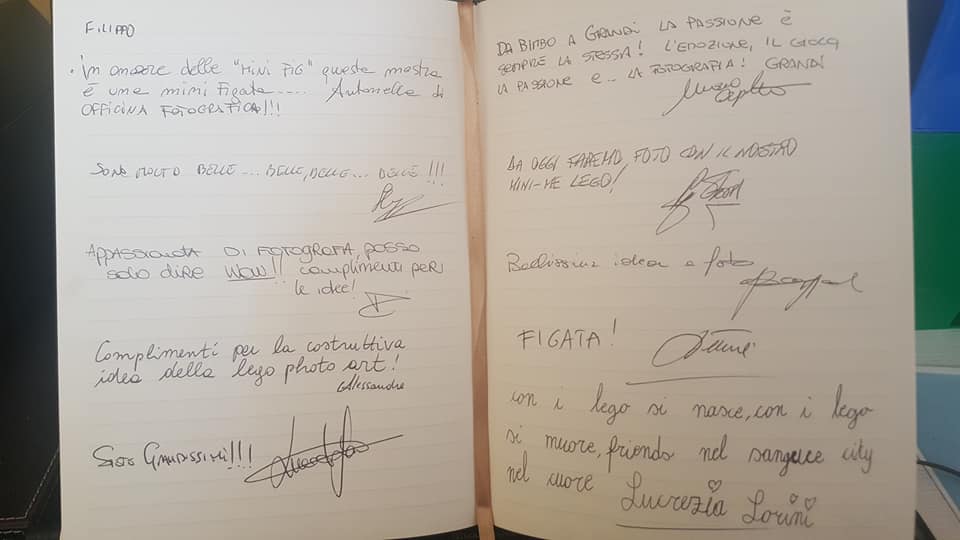 FILIPPO
• In onore delle "MINI FIG" questa mostra
è una mimi figata..... Antonella di
OFFICINA FOTOGRAFICA!!!
SONO MOLTO BELLE... BELLE, BELLE... BELLE!!!
APPASSIONATA DI FOTOGRAFIA, POSSO
SOLO DIRE WOW!! COMPLIMENTI PER
le idee!
Complimenti per la costruttiva
idea della lego photo art!
Alessandra
Siete GRANDISSIMI!!!
DA BIMBO A GRANDI LA PASSIONE È
SEMPRE LA STESSA! L'EMOZIONE, IL GIOCO,
LA PASSIONE E... LA FOTOGRAFIA! GRANDI
DA OGGI FAREMO FOTO CON IL NOSTRO
MINI-ME LEGO!
Bellissima idea e foto
FIGATA!
con i lego si nasce, con i lego
si muore, friends nel sangue city
nel cuore Lucrezia Lorini